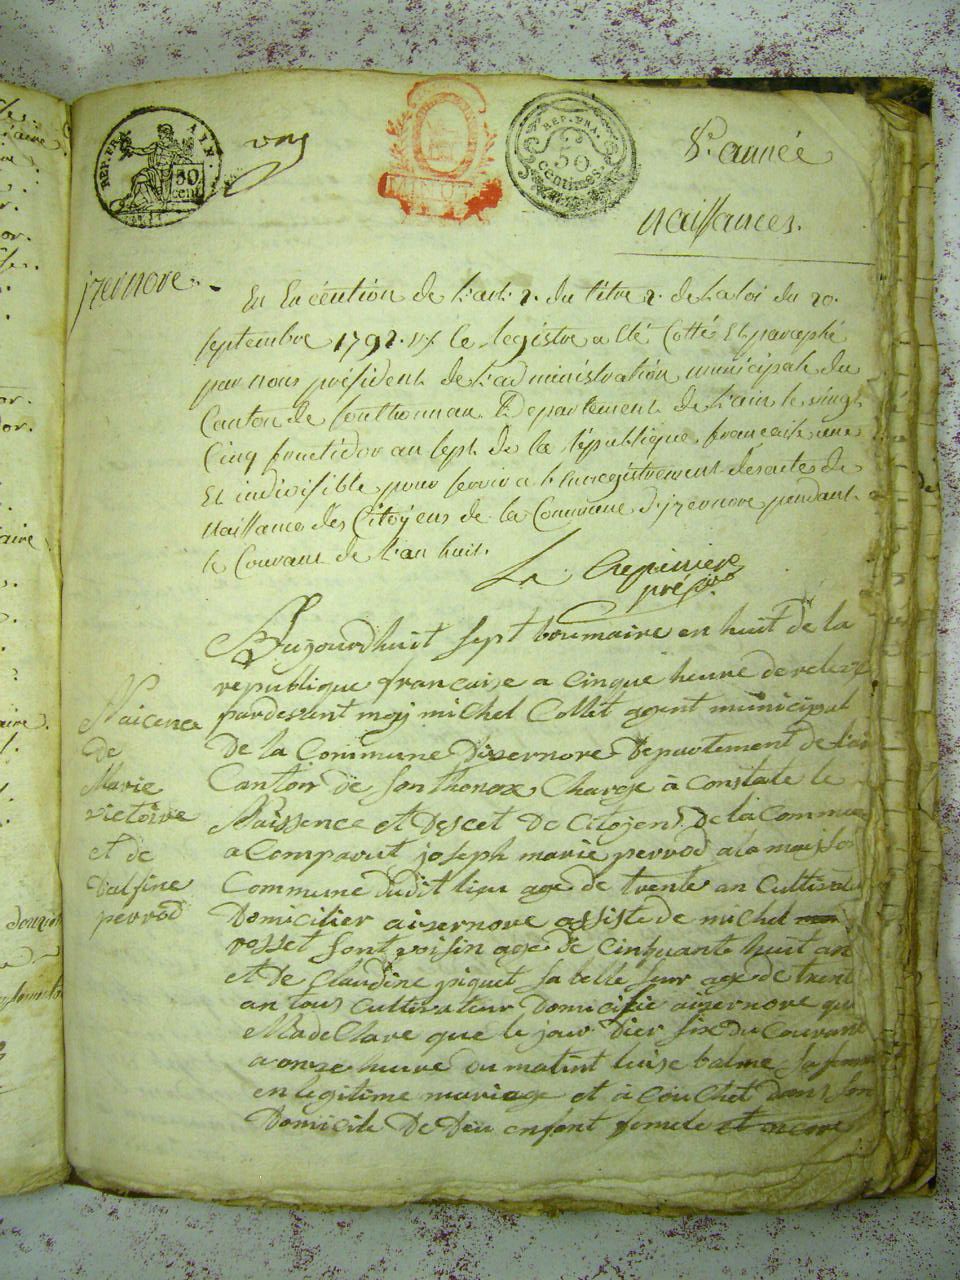 REP. FRA. AIN.
50
cent
REP. FRA.
50
centimes.
8e. année
Naissances.
jzernore.
En Exécution de l'art. 2. du titre 2. de la loi du 20.
septembre 1792. le Registre a été Cotté Et paraphé
par nous président de l'administration municipale du
Canton de Sonthonnax Département de l'ain le vingt
Cinq fructidor an sept de la République française une
Et indivisible pour servir a l'Enregistrement des actes de
Naissance des Citoyens de la Commune d'jzernore pendant
le Courant de l'an huit.
La Crepiniere
présid.
Aujourdhuit sept brumaire en huit de la
republique francaise a cinque heure de
pardevent moj michel Collet agent municipal
De la Commune Dizernore Departement de l'ain
Canton de Sonthonax Charge à Constate le
Naissence et Descet De Citojens De la Commune
a Comparut joseph marie perrod a la maison
Commune dudit lieu age de trente an Cultivateur
Domicilier aizernore assiste de michel
rosset sont voisin age de cinquante huit an
et de Claudine piquet sa belle sœur age de trent
an tous Cultivateur Domicilie aizernore qui
Ma deClare que le jour Dier six du Courant
a onze heure du matint luise balme sa femme
en legitime mariage et à Couchet Dans son
Domicile De Deu enfent femele et encore
Naicence
De
Marie
victoire
et de
Dalfine
perrod